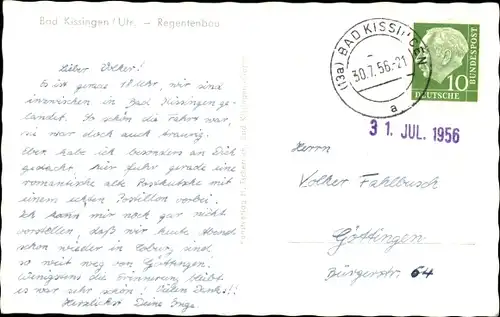 Bad Kissingen / Ufr. – Regentenbau
Lieber Volker!
Es ist gerade 18 Uhr, wir sind
inzwischen in Bad Kissingen ge-
landet. So schön die Fahrt war,
sie war doch auch traurig.
Eben habe ich besonders an Dich
gedacht. Hier fuhr gerade eine
romantische alte Postkutsche mit
einem echten Postillon vorbei.
Ich kann mir noch gar nicht
vorstellen, daß wir heute Abend
schon wieder in Coburg sind
so weit weg von Göttingen!
Wenigstens die Erinnerung bleibt
es war sehr schön! Vielen Dank!!
Herzlichst Deine Inge.
(13a) BAD KISSINGEN
30.7.56.-21
a
10
DEUTSCHE BUNDESPOST
31. JUL. 1956
Herrn
Volker Fahlbusch
Göttingen
Bürgerstr. 64